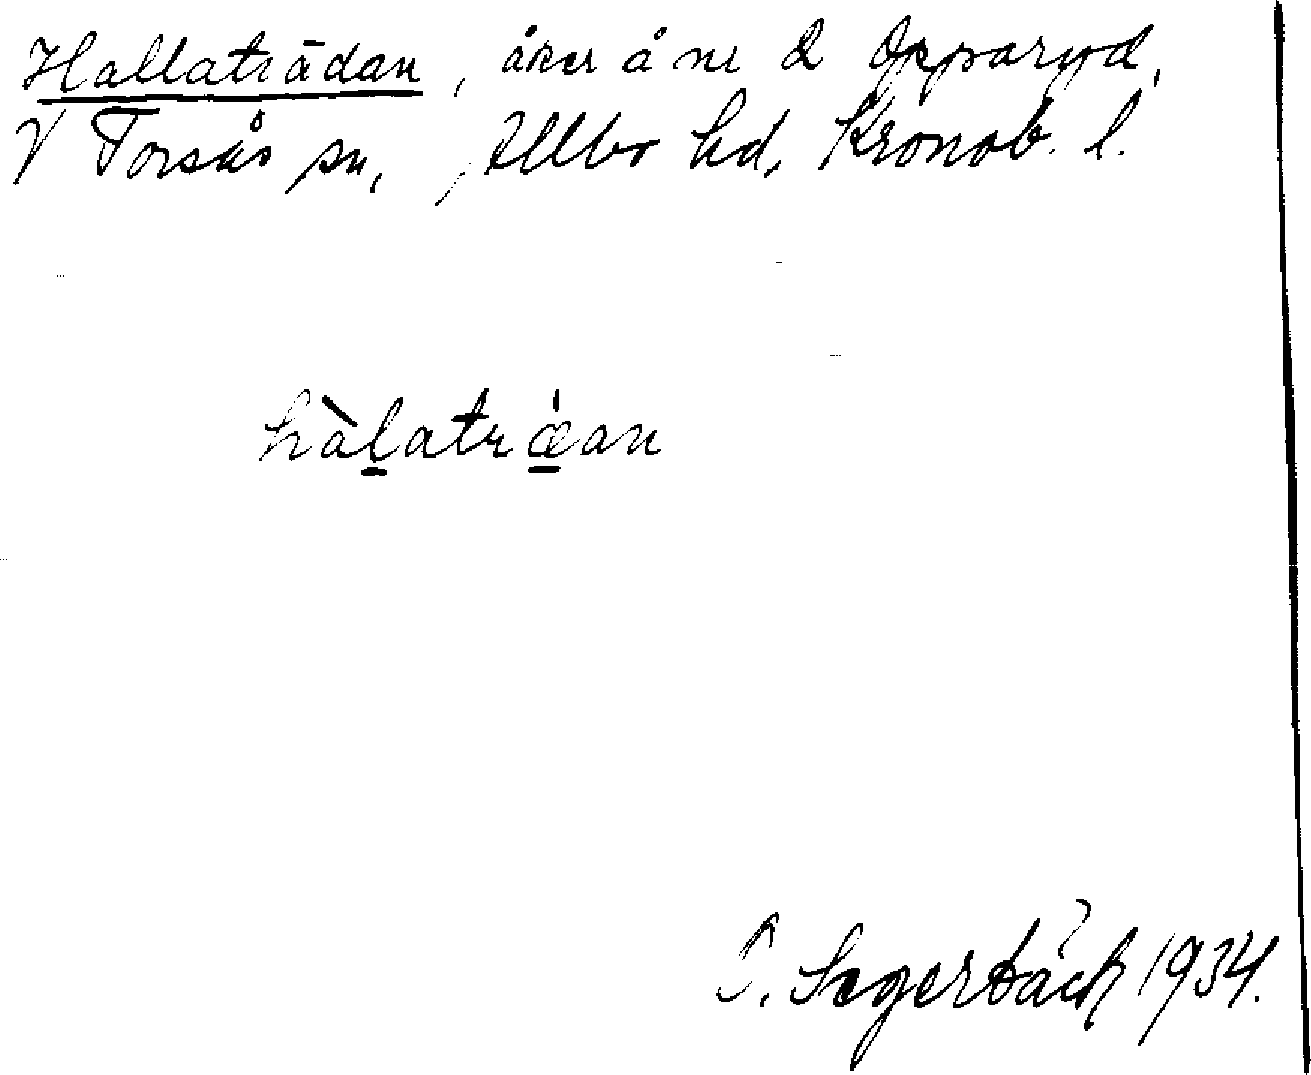 Hallaträdan, åker å nr 2 Opparyd,
V Torsås sn, Allbo hd, Kronob. l.
hàlatræ̍an
J. Segerbäck 1934.